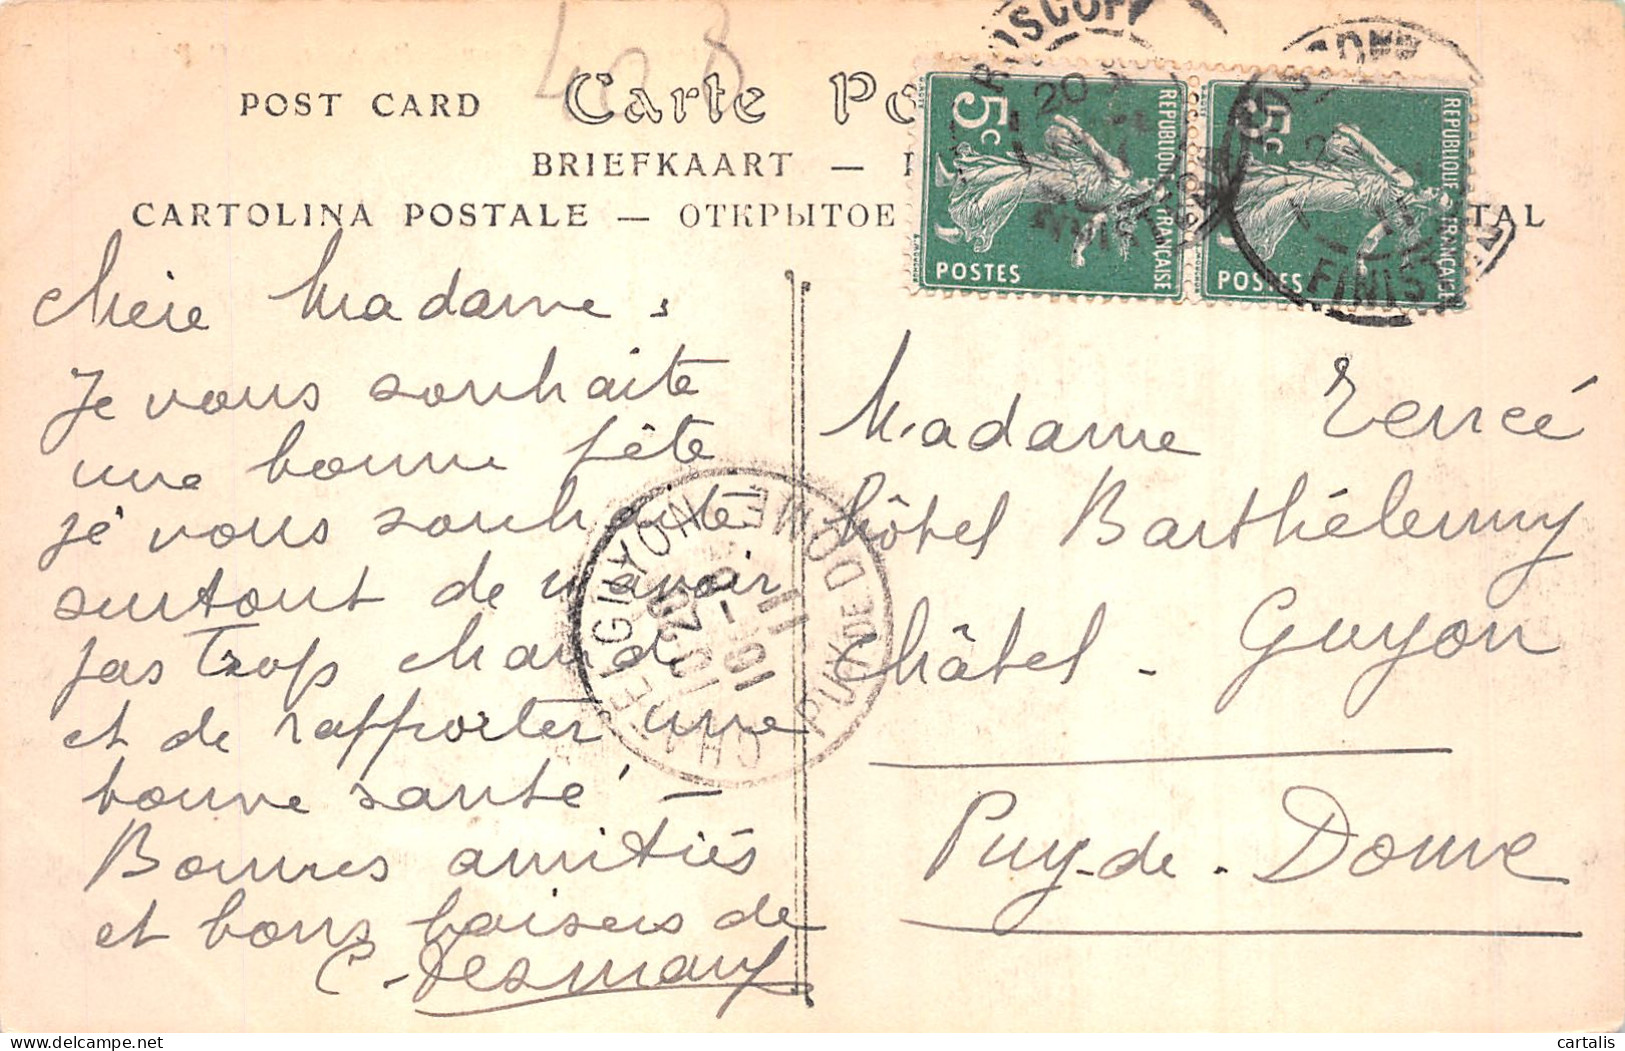 POST CARD Carte Po
BRIEFKAART —
CARTOLINA POSTALE — ОТКРЫТОЕ TAL
5c
REPUBLIQUE FRANÇAISE
POSTES
5c
REPUBLIQUE FRANÇAISE
POSTES
ROSCOFF
20
FINIS
Chère Madame,
Je vous souhaite
une bonne fête
je vous souhaite
surtout de n'avoir
pas trop chaud
et de rapporter une
bonne santé —
Bonnes amitiés
et bons baisers de
C. Desmary
CHATEL GUYON
PUY DE DOME
Madame
hôtel Barthélemy
Châtel-Guyon
Puy-de-Dome
cartalis